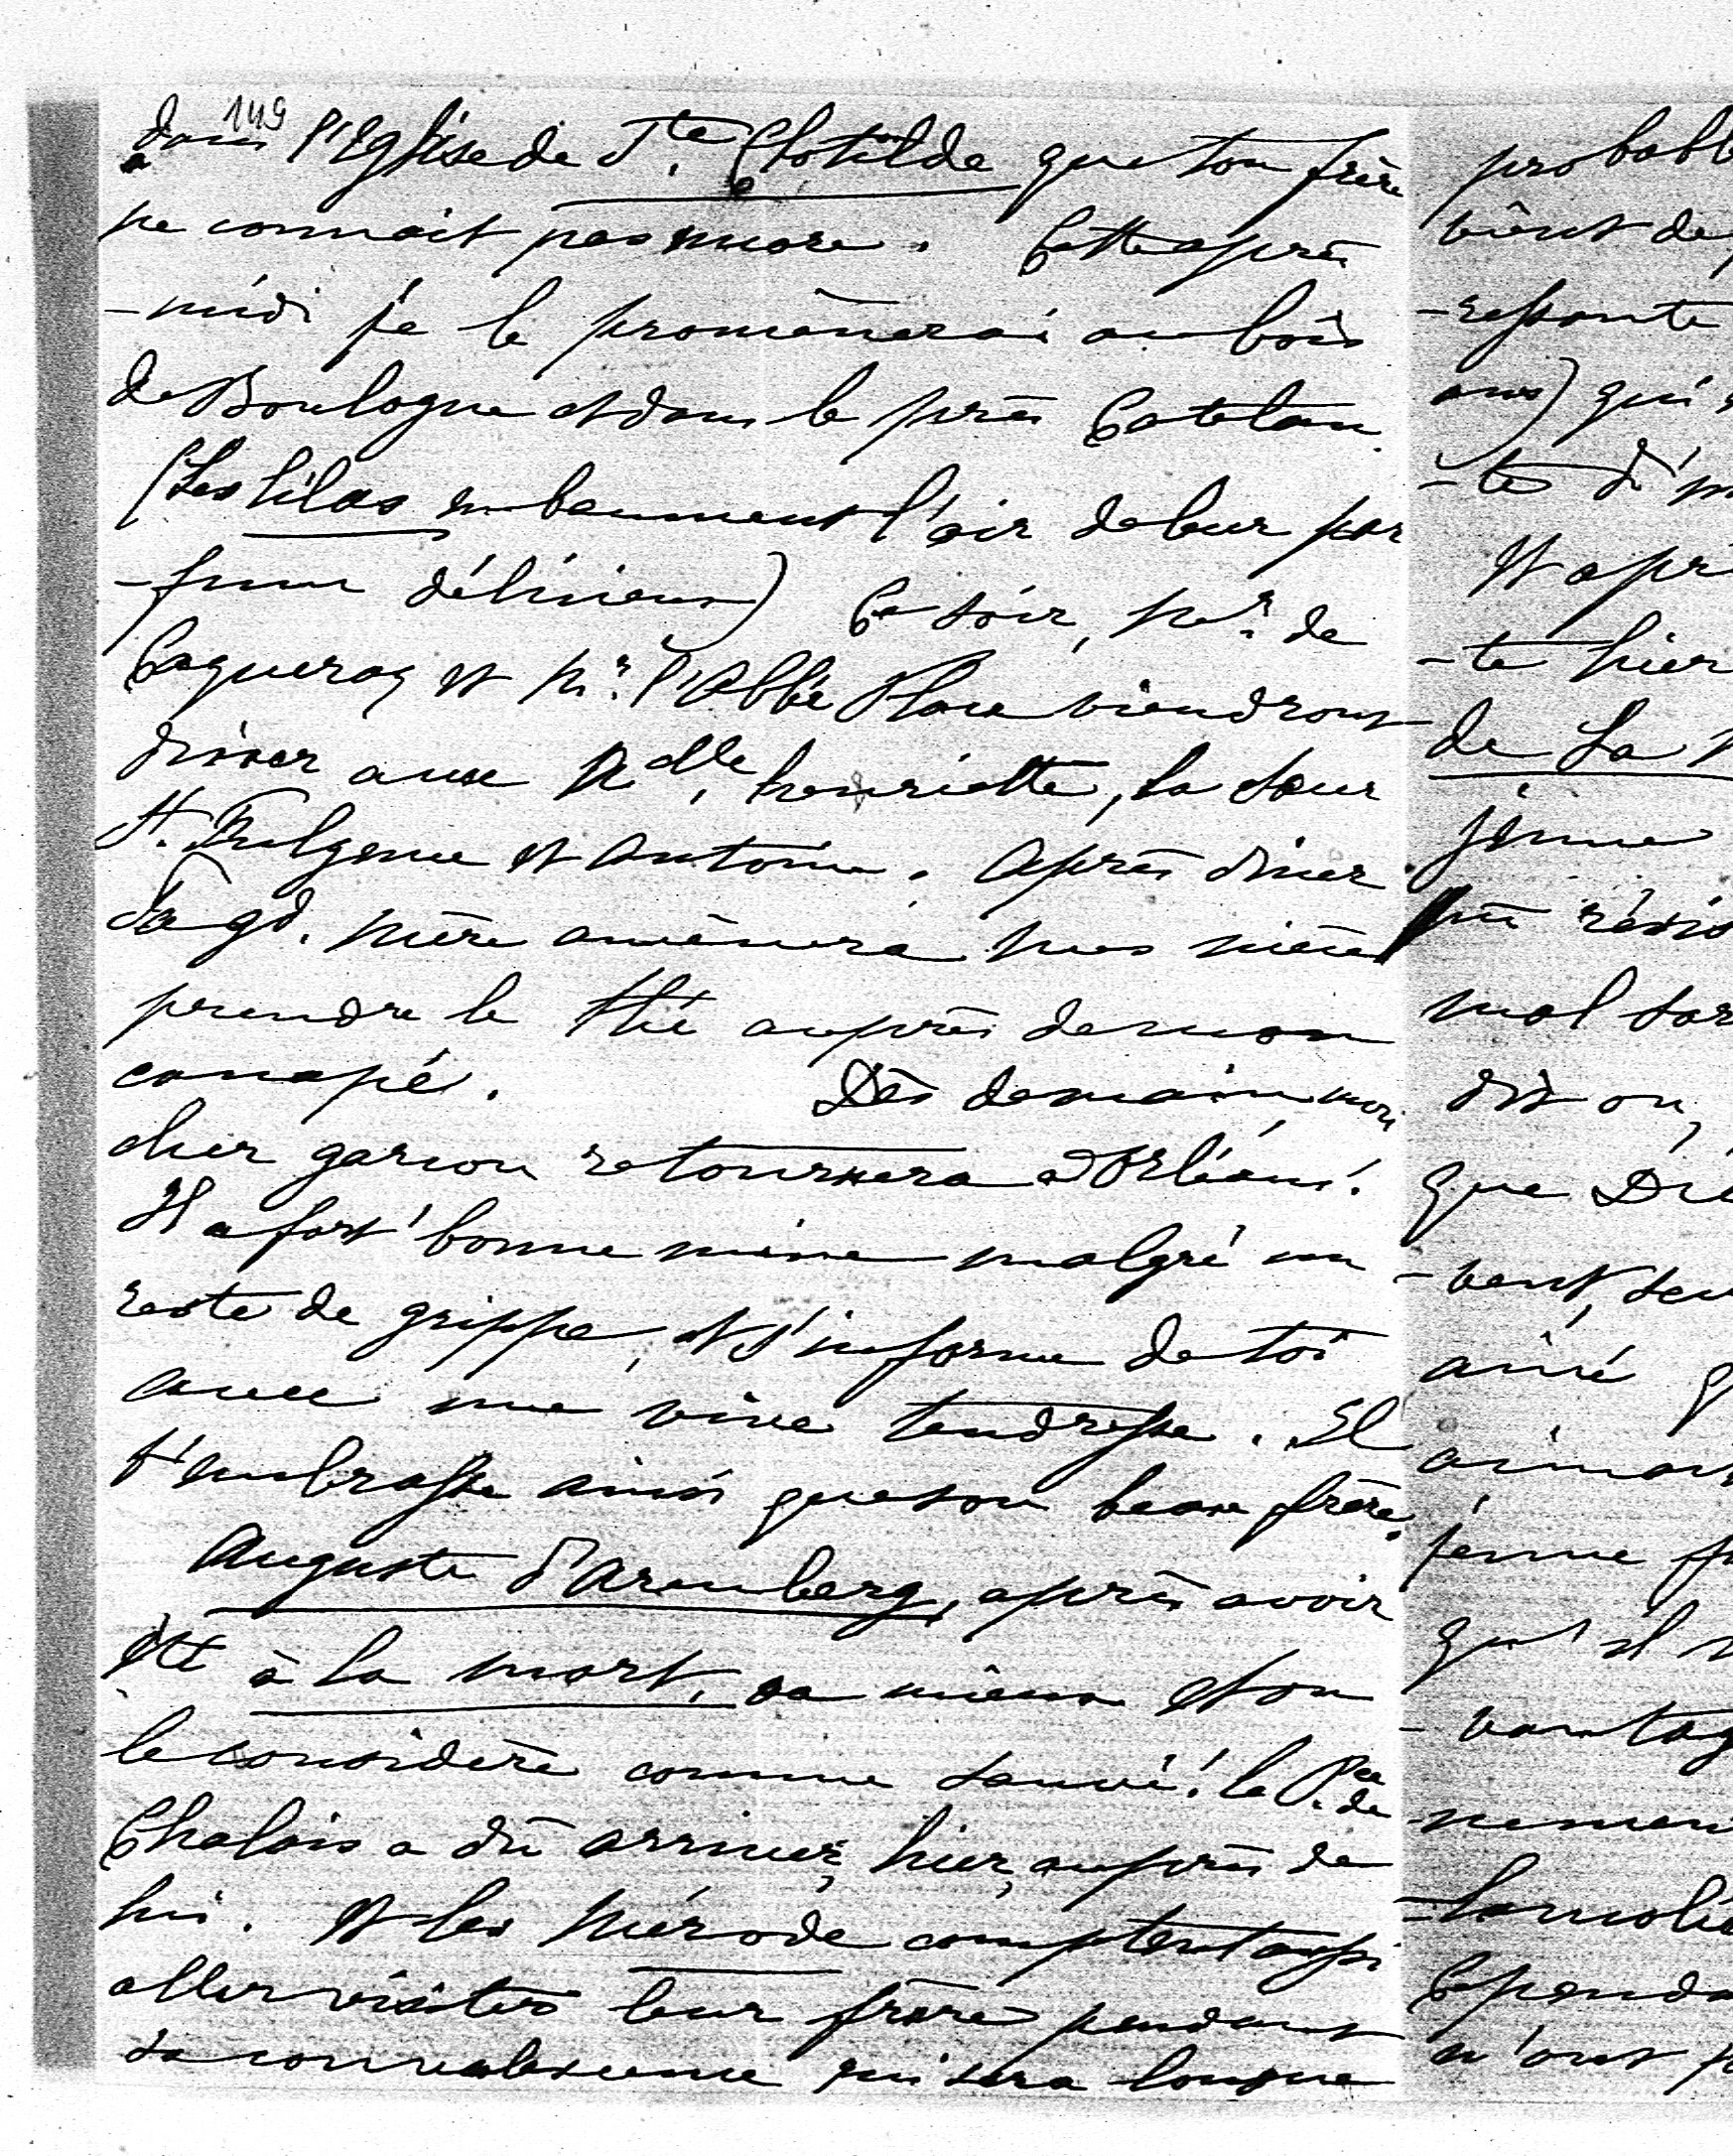 149
dans l'Eglise de Ste. Clotilde que ton frère
ne connait pas encore. Cette après
-midi je le promènerai au bois
de Boulogne et dans le près Catelan.
(Les lilas embaument l'air de leur par
-fum délicieux) Ce soir, Mr. de
Coqueray et Mr. l'Abbé viendront
diner avec Melle. henriette, la sœur
St. Fulgence et Antoine. Après diner
ta gd. mère amènera mes nièces
prendre le thé auprès de mon
canapé. Dès demain, mon
cher garçon retournera à Orléans!
Il a fort bonne mine malgré un
reste de grippe, et s'informe de toi
avec une vive tendresse. Il
t'embrasse ainsi que son beau frère.
Auguste d'Arenberg, après avoir
été à la mort, va mieux et on
le considère comme sauvé! le Pce de
Chalais a dû arriver, hier, auprès de
lui. Et les Mérode comptent aussi
aller visiter leur frère pendant
sa convalescence qui sera longue
probabl
vient de
-ressante
ans) qui
-te d'
Et apr
-te hier
de La
jeune
mal
dit on,
que Di
-vent
aimé
jeune
qu'il
-vantag
n'ont